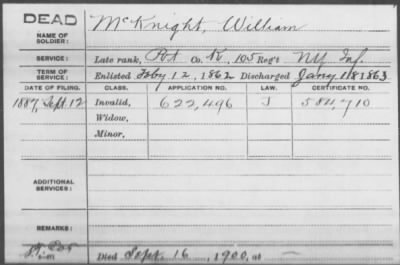 DEAD
NAME OF SOLDIER: McKnight, William
SERVICE: Late rank, Pvt Co. K, 105 Reg't NY Inf.
TERM OF SERVICE: Enlisted Feby 12, 1862 Discharged Jany 18 1863
DATE OF FILING. CLASS. APPLICATION NO. LAW. CERTIFICATE NO.
1887, Sept. 12 Invalid, 622,496 J 584,710
Widow,
Minor,
ADDITIONAL SERVICES:
REMARKS:
Died Sept. 16, 1900, at —